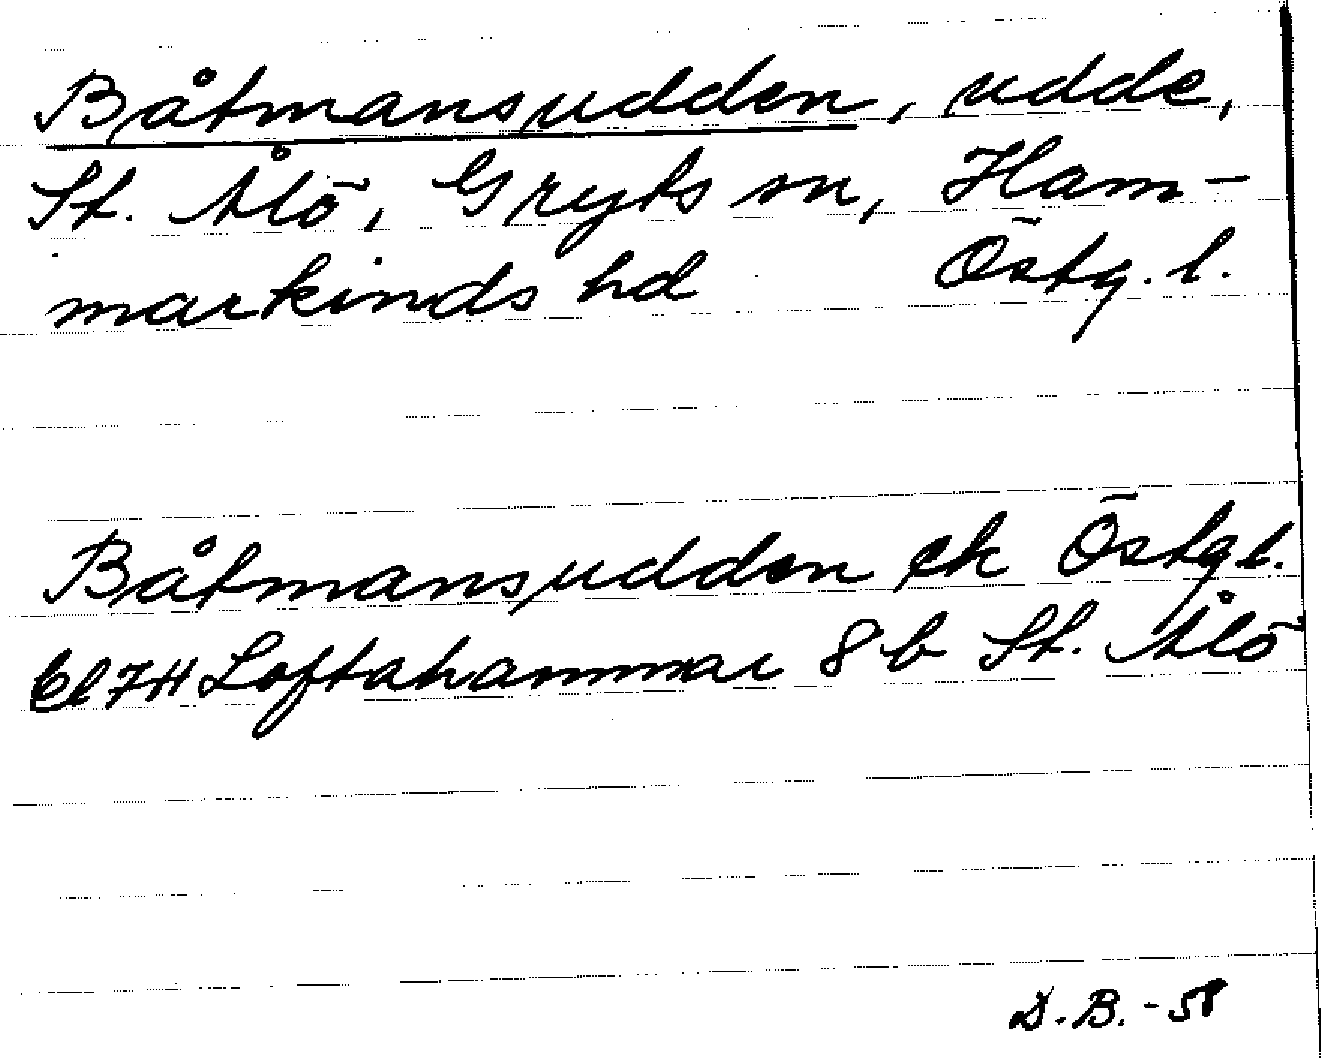 Båtmansudden, udde,
St. Ålö, Gryts sn, Ham-
markinds hd Östg. l.
Båtmansudden ek Östg l.
6l7H Loftahammar 8 b St. Ålö
D.B. - 58